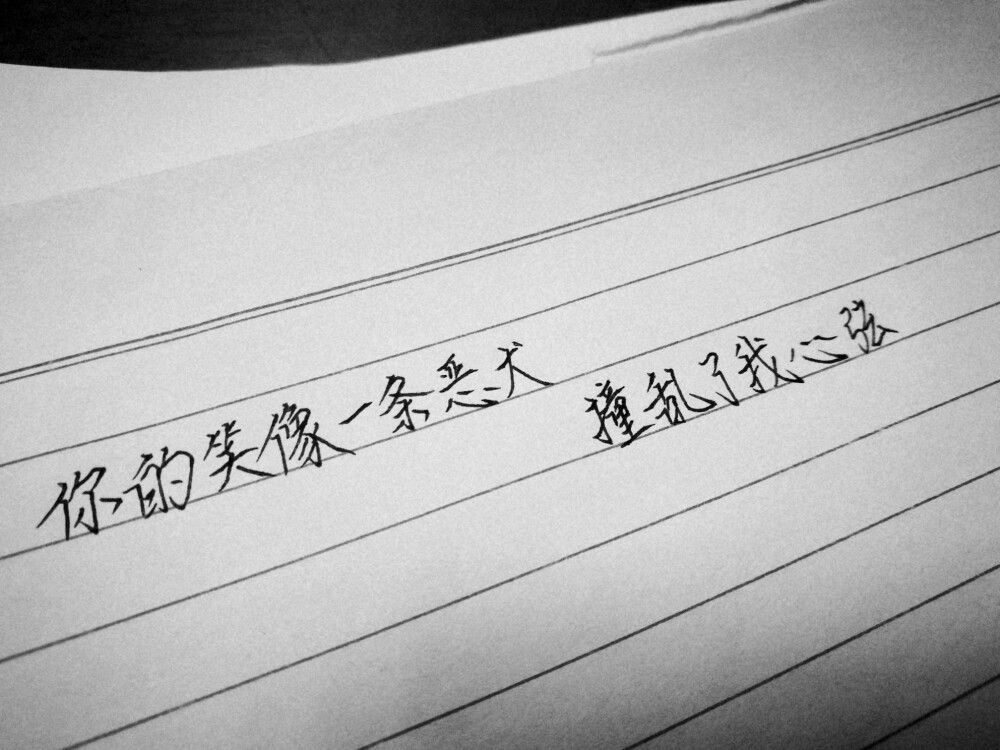 你的笑像一条恶犬 撞乱了我心弦